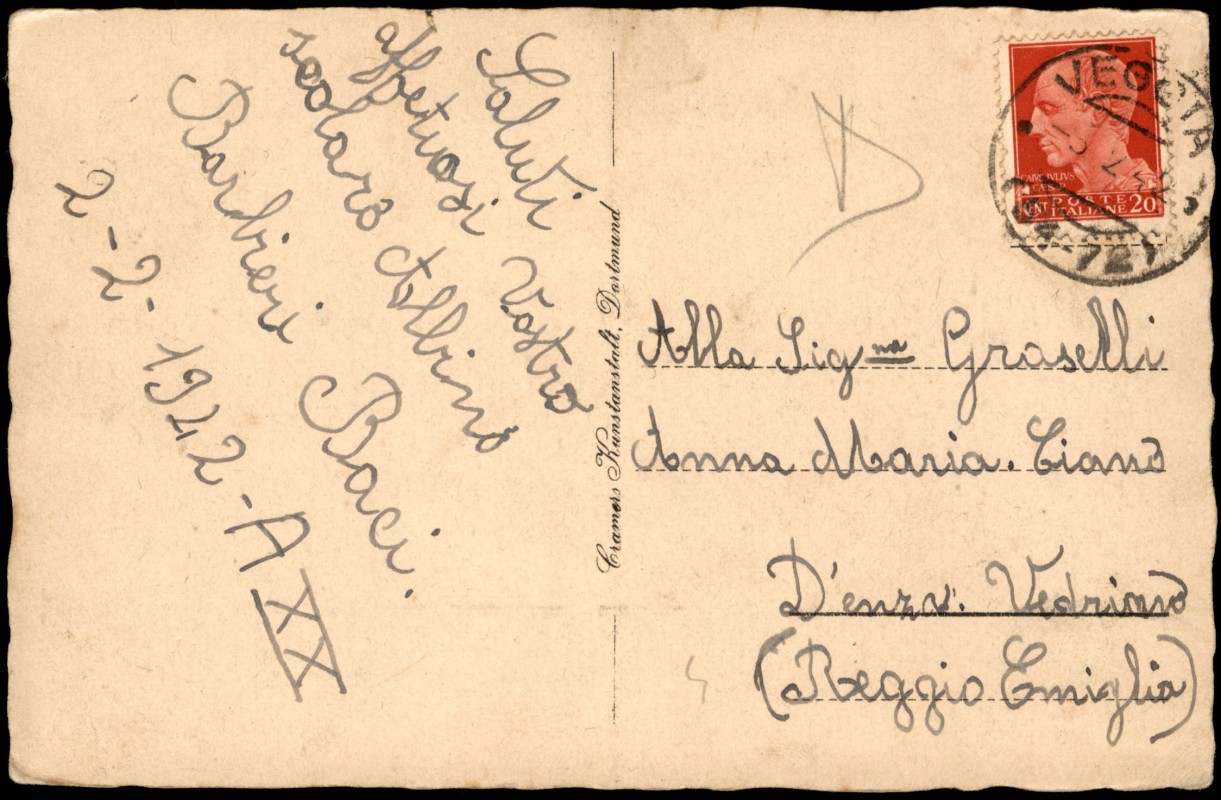 Saluti Vostro
affetuosi
scolaro Albino
Barbieri Baci.
2-2-1942-A XX
Cramers Kunstanstalt, Dortmund
VEGGIA
CAIVS IVLIVS
CAESAR
CENT. POSTE 20
ITALIANE
Alla Sigⁿᵃ Graselli
Anna Maria. Ciano
D'enzv. Vedriano
(Reggio Emiglia)